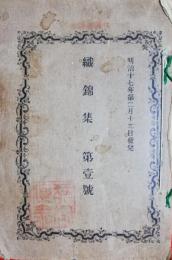 明治十七年第二月十三日發兌
織錦集　第壹號